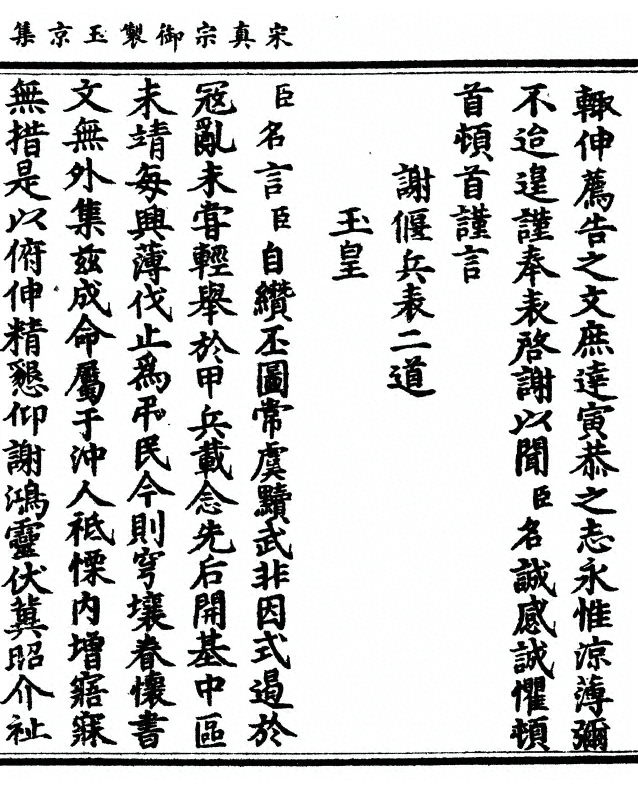 宋真宗御製玉京集
輙伸薦告之文庶達寅恭之志永惟涼薄彌
不迨遑謹奉表啓謝以聞臣名誠感誠懼頓
首頓首謹言
謝偃兵表二道
玉皇
臣名言臣自纘丕圖常虞黷武非因式遏於
寇亂未甞輕舉於甲兵載念先后開基中區
未靖每興薄伐止為弔民今則穹壤眷懷書
文無外集茲成命屬于沖人祗慄內增寤寐
無措是以俯伸精懇仰謝鴻靈伏冀昭介祉